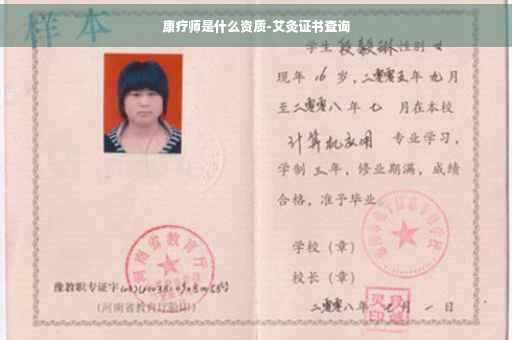 康疗师是什么资质-艾灸证书查询
样本
学生 段毅琳 性别 女
现年 16 岁，二零零五年 九 月
至二零零八年 七 月在本校
计算机应用 专业学习，
学制 三 年，修业期满，成绩
合格，准予毕业
学校（章）
校长（章）
二零零八年 七 月 一 日
河南省教育厅
豫教职专证字
（河南省教育厅验印）